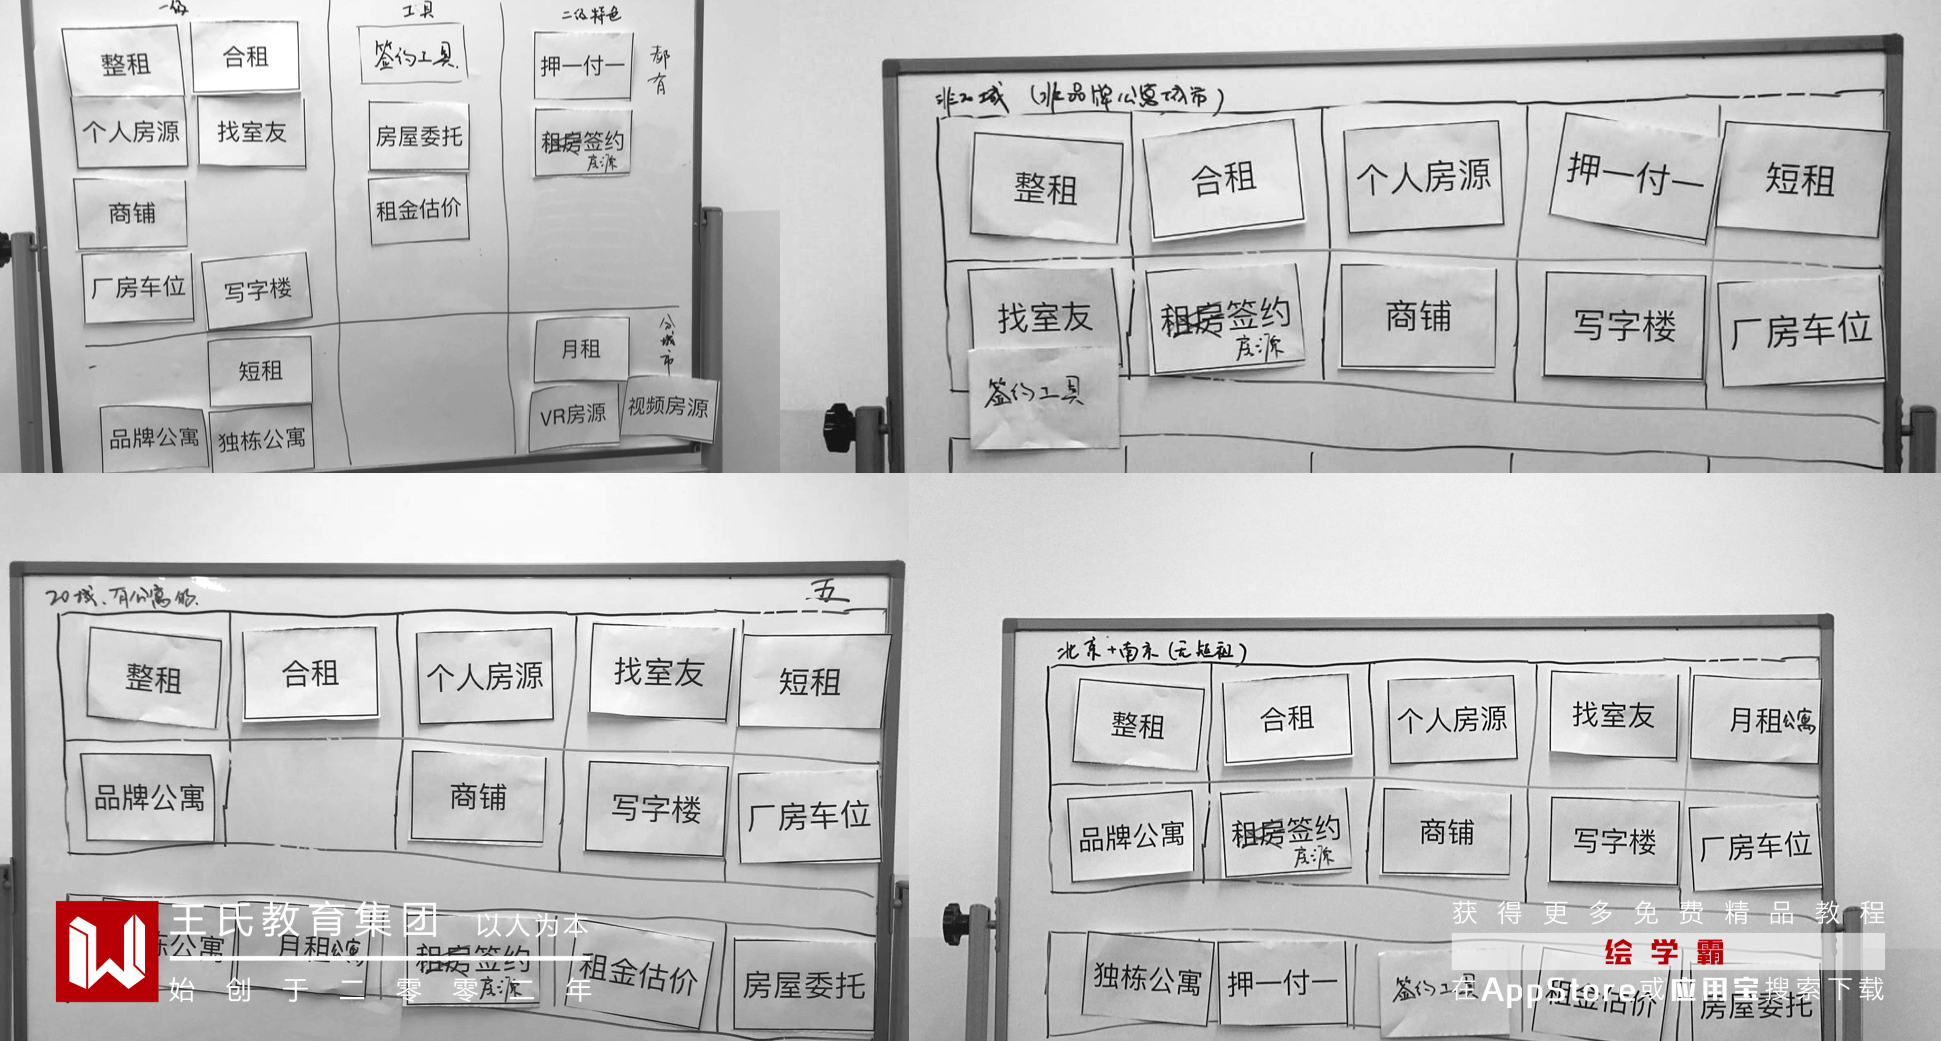 一级 工具 二级特色
整租 合租 签约工具 押一付一 都有
个人房源 找室友 房屋委托 租房签约 房源
商铺 租金估价
厂房车位 写字楼
短租 月租 分城市
品牌公寓 独栋公寓 VR房源 视频房源
非20城 (非品牌公寓城市)
整租 合租 个人房源 押一付一 短租
找室友 租房签约 房源 商铺 写字楼 厂房车位
签约工具
20城、有公寓的 五
整租 合租 个人房源 找室友 短租
品牌公寓 商铺 写字楼 厂房车位
栋公寓 月租公寓 租房签约 房源 租金估价 房屋委托
王氏教育集团 以人为本
始创于二零零二年
北京+南京(无短租)
整租 合租 个人房源 找室友 月租公寓
品牌公寓 租房签约 房源 商铺 写字楼 厂房车位
独栋公寓 押一付一 签约工具 租金估价 房屋委托
获得更多免费精品教程
绘学霸
在AppStore或应用宝搜索下载